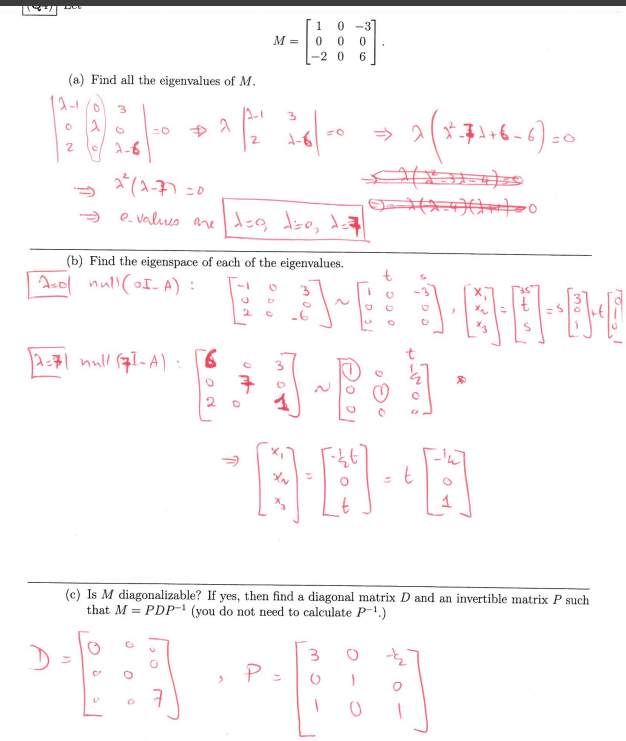 M = [ 1 0 −3 ; 0 0 0 ; −2 0 6 ] .
(a) Find all the eigenvalues of M.
| λ-1 0 3 ; 0 λ 0 ; 2 0 λ-6 | =0 ⇒ λ | λ-1 3 ; 2 λ-6 | =0 ⇒ λ(λ²-7λ+6-6)=0
⇒ λ²(λ-7)=0
⇒ e-values are λ=0, λ=0, λ=7
(b) Find the eigenspace of each of the eigenvalues.
t s
λ=0 null(0I-A) : [ -1 0 3 ; 0 0 0 ; 2 0 -6 ] ~ [ 1 0 -3 ; 0 0 0 ; 0 0 0 ] , [ x₁ ; x₂ ; x₃ ] = [ 3s ; t ; s ] = s [ 3 ; 0 ; 1 ] + t [ 0 ; 1 ; 0 ]
t
λ=7 null(7I-A) : [ 6 0 3 ; 0 7 0 ; 2 0 1 ] ~ [ 1 0 ½ ; 0 1 0 ; 0 0 0 ]
⇒ [ x₁ ; x₂ ; x₃ ] = [ -½t ; 0 ; t ] = t [ -½ ; 0 ; 1 ]
(c) Is M diagonalizable? If yes, then find a diagonal matrix D and an invertible matrix P such
that M = PDP⁻¹ (you do not need to calculate P⁻¹.)
D = [ 0 0 0 ; 0 0 0 ; 0 0 7 ] , P = [ 3 0 -½ ; 0 1 0 ; 1 0 1 ]